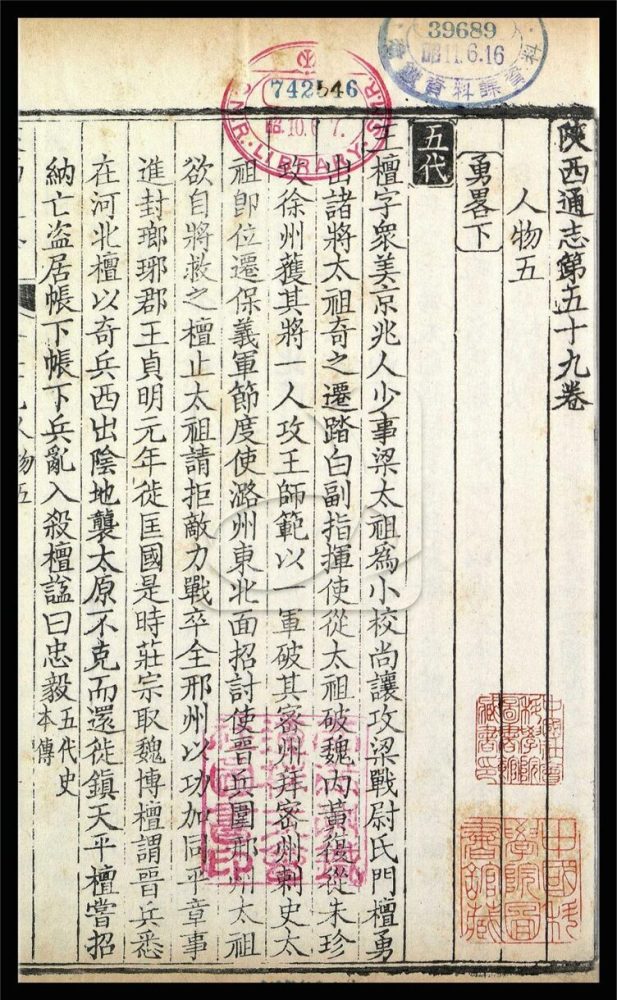 陝西通志第五十九卷
人物五
勇畧下
五代
王檀字衆美京兆人少事梁太祖為小校尚讓攻梁戰尉氏門檀勇
出諸將太祖奇之遷踏白副指揮使從太祖破魏內黃復從朱珍
攻徐州獲其將一人攻王師範以一軍破其密州拜密州刺史太
祖即位遷保義軍節度使潞州東北面招討使晉兵圍邢州太祖
欲自將救之檀止太祖請拒敵力戰卒全邢州以功加同平章事
進封瑯琊郡王貞明元年徙匡國是時莊宗取魏博檀謂晉兵悉
在河北檀以奇兵西出陰地襲太原不克而還徙鎮天平檀嘗招
納亡盜居帳下帳下兵亂入殺檀諡曰忠毅五代史
本傳
人物五
39689
11.6.16
資料課
742546
10.6.7.
LIBRARY
中國科
學院圖
書館藏